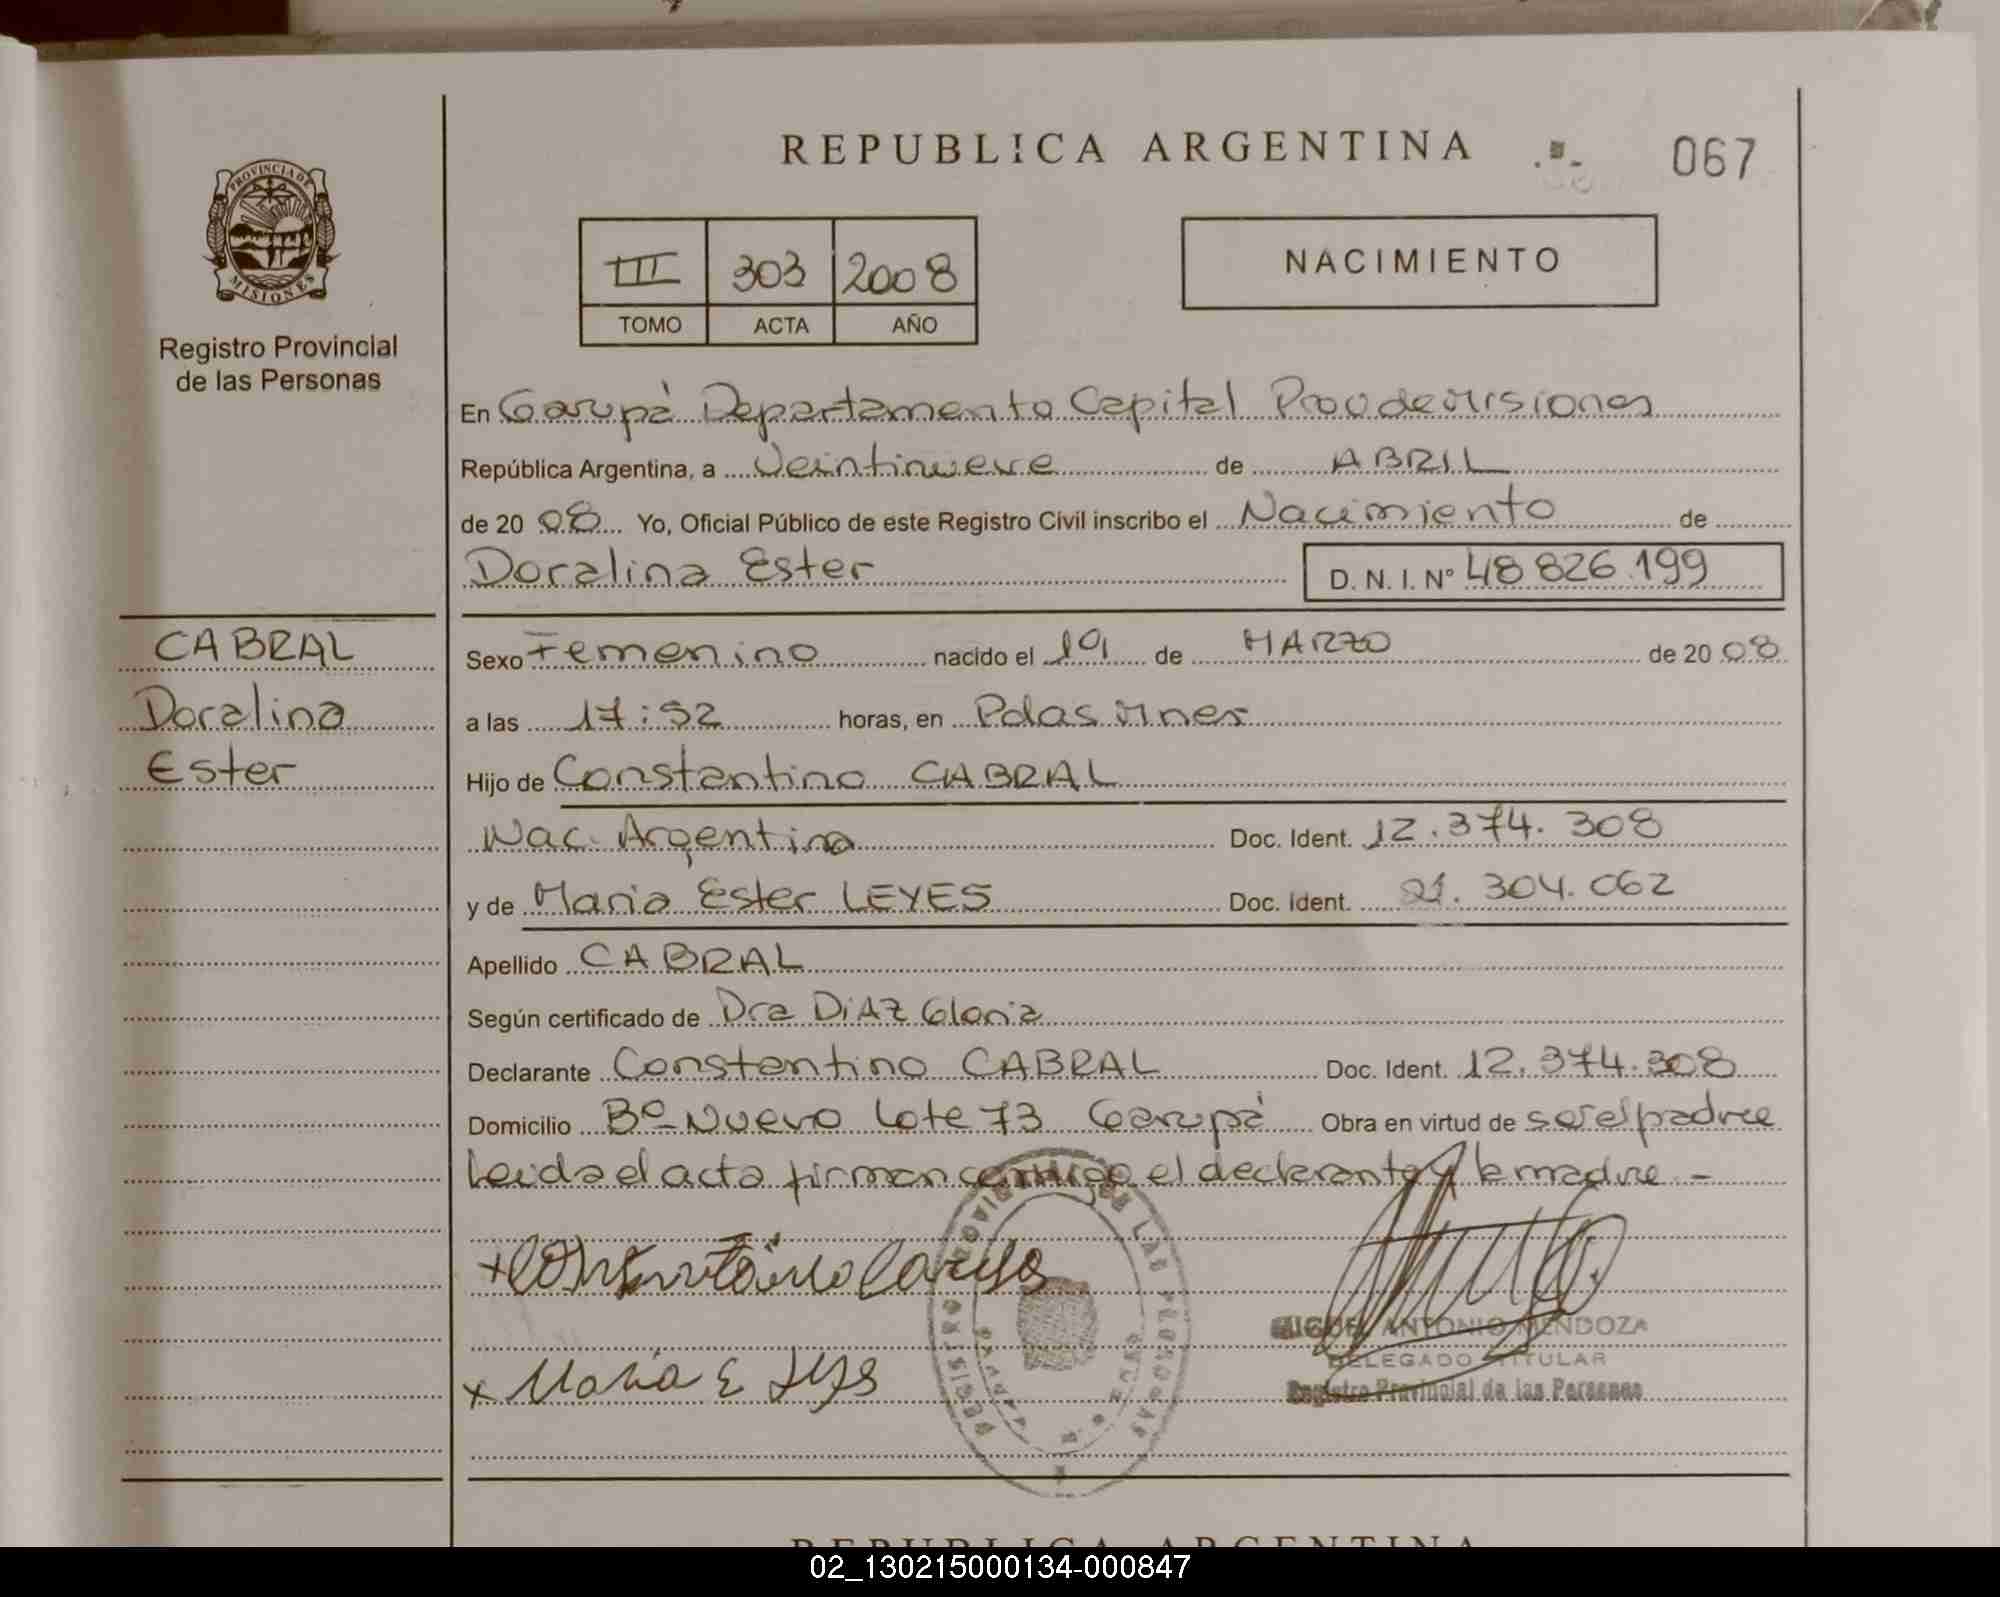 REPUBLICA ARGENTINA
067
PROVINCIA DE
MISIONES
Registro Provincial
de las Personas
III 303 2008
TOMO ACTA AÑO
NACIMIENTO
En Garupá Departamento Capital Prov de Misiones
República Argentina, a Veintinueve de ABRIL
de 20 08 Yo, Oficial Público de este Registro Civil inscribo el Nacimiento de
Doralina Ester D. N. I. Nº 48 826 199
CABRAL
Doralina
Ester
Sexo Femenino nacido el 19 de MARZO de 20 08
a las 17:52 horas, en Pdas Mnes
Hijo de Constantino CABRAL
Nac. Argentina Doc. Ident. 12.374.308
y de Maria Ester LEYES Doc. Ident. 21.304.062
Apellido CABRAL
Según certificado de Dra DIAZ Gloria
Declarante Constantino CABRAL Doc. Ident. 12.374.308
Domicilio Bº Nuevo Lote 73 Garupá Obra en virtud de ser el padre
Leida el acta firman conmigo el declarante y la madre -
Maria E
MIGUEL ANTONIO MENDOZA
DELEGADO TITULAR
Registro Provincial de las Personas
REPUBLICA ARGENTINA
02_130215000134-000847